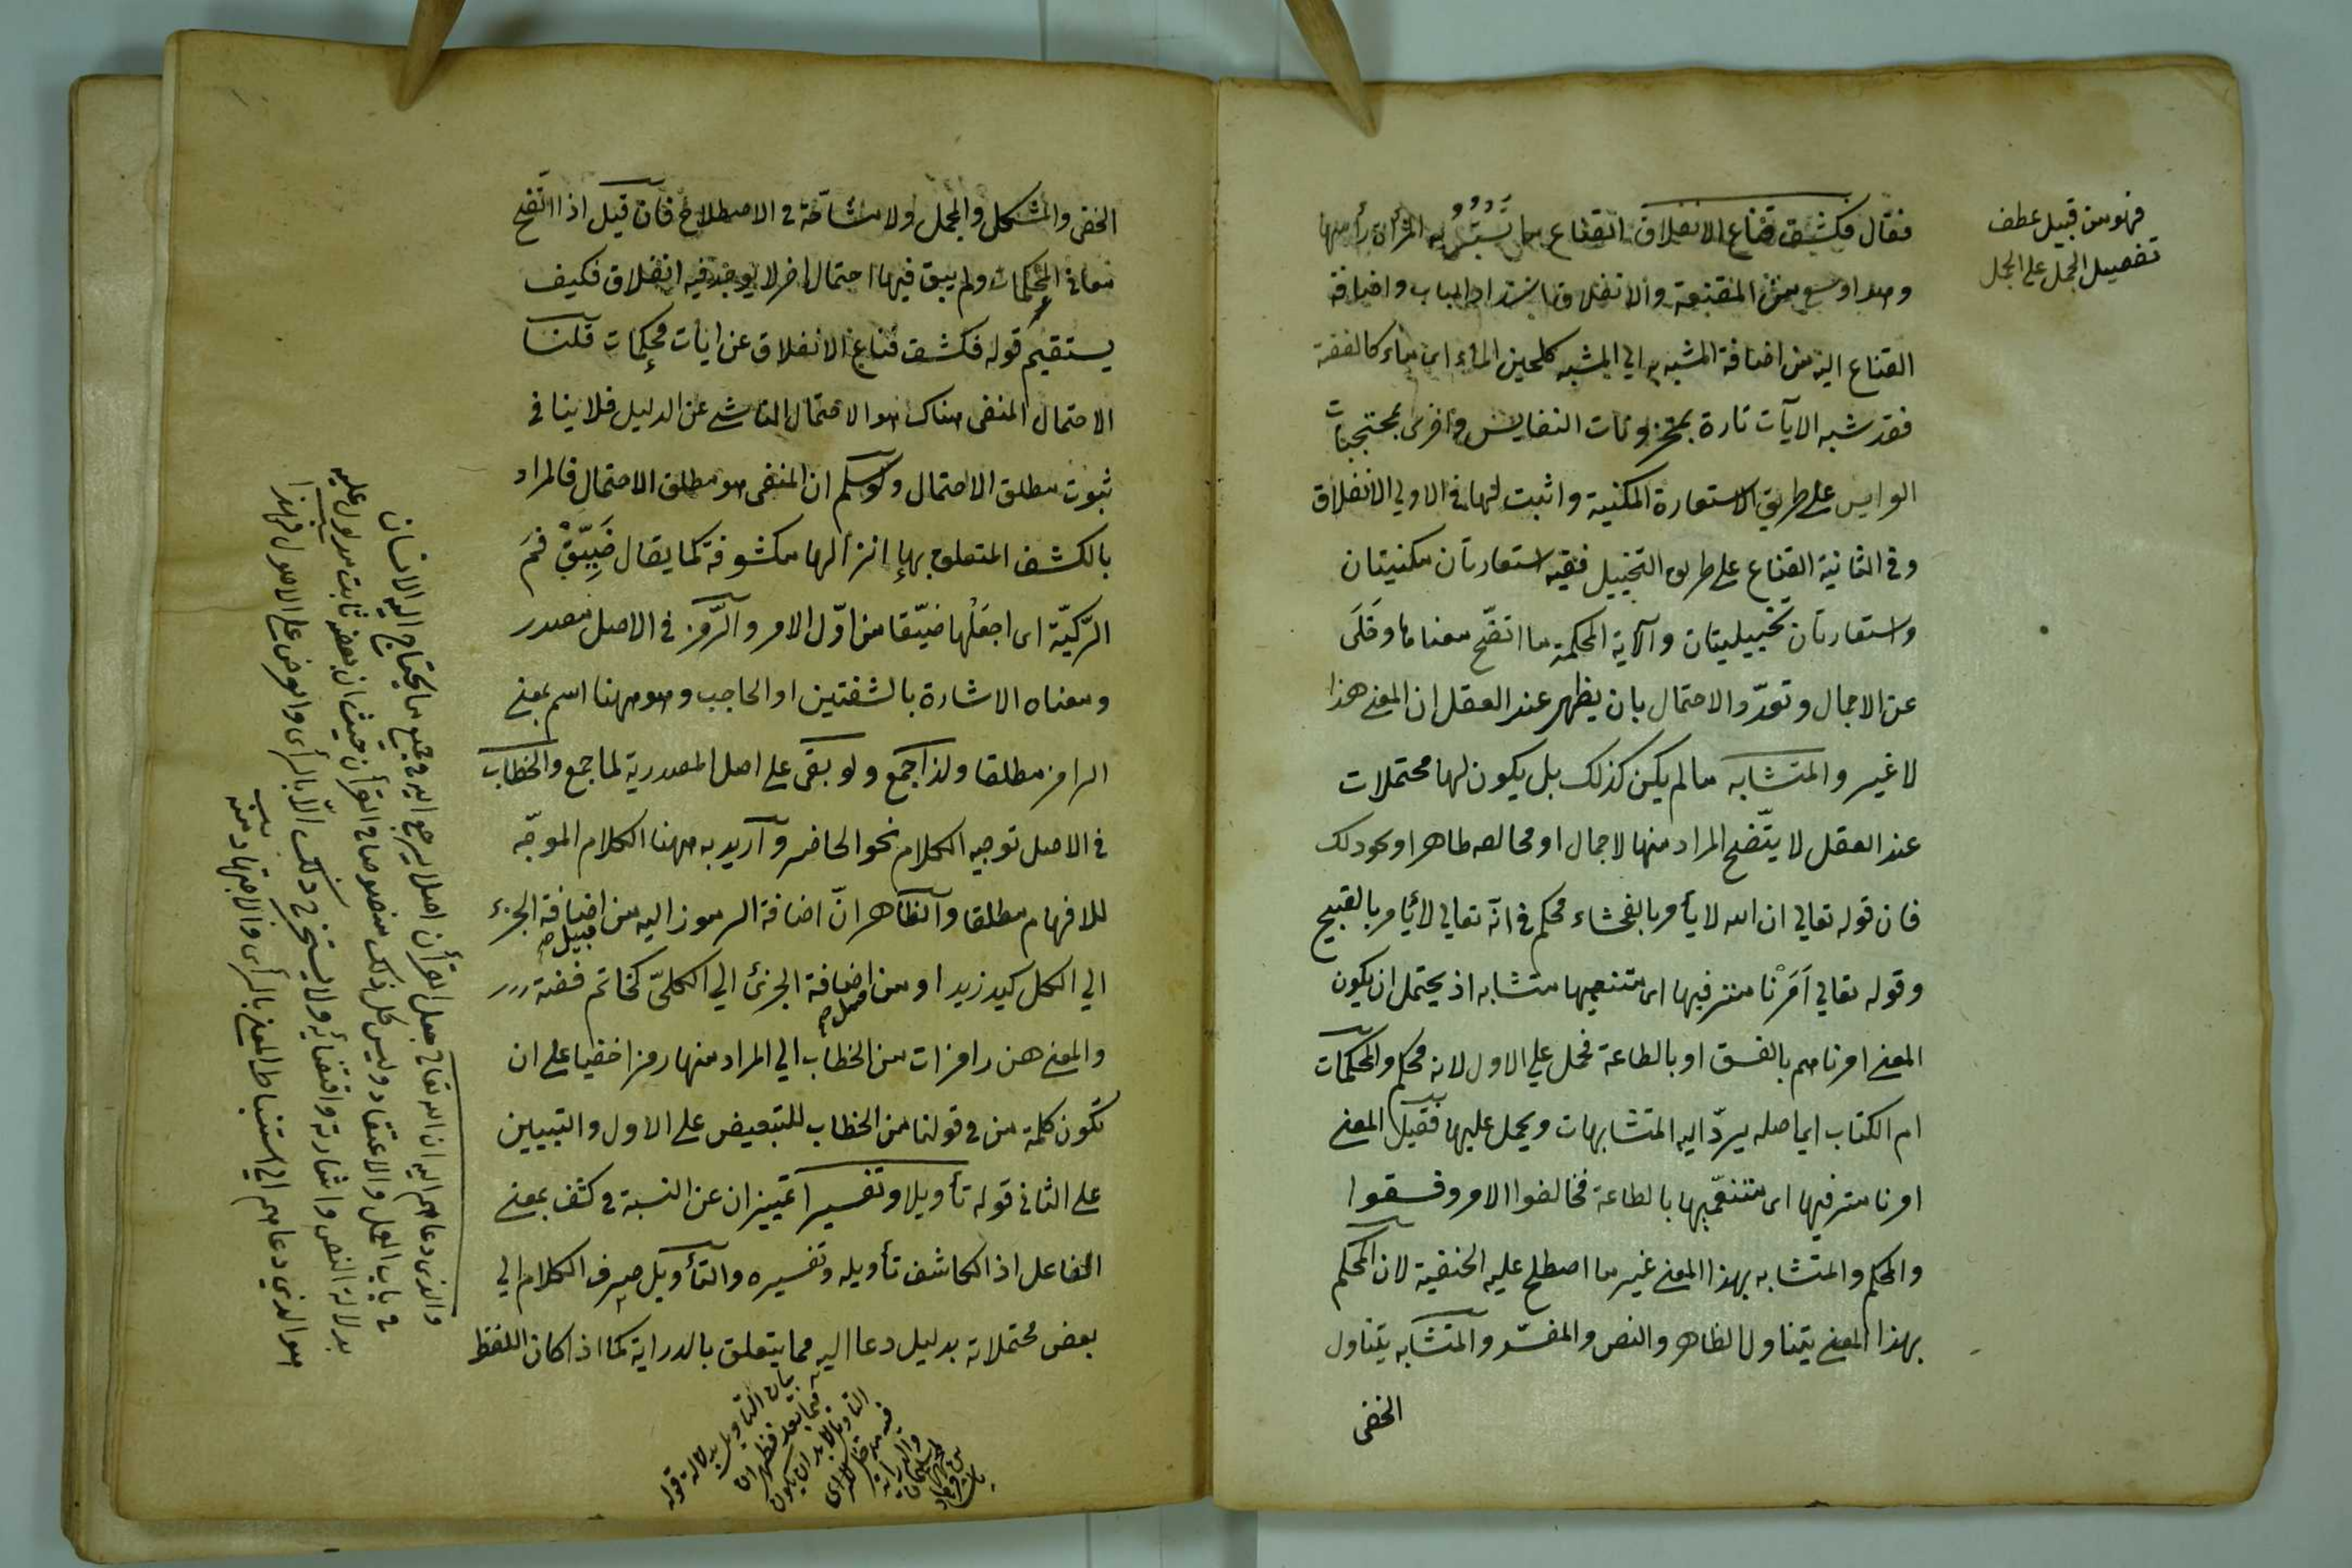 فهو من قبيل عطف
تفصيل المجمل على المجمل
فقال فكشف قناع الانغلاق القناع ما تستر به المرأة رأسها
وهو اوسع من المقنعة والانغلاق انسداد الباب واضافة
القناع اليه من اضافة المشبه به الي المشبه كلجين الماء اى ماء كالفضة
فقد شبه الآيات تارة بمخزونات النفايس واخرى بمحتجبات
العرايس على طريق الاستعارة المكنية واثبت لها فى الاولي الانغلاق
وفى الثانية القناع على طريق التخييل ففيه استعارتان مكنيتان
واستعارتان تخييليتان والآية المحكمة ما اتضح معناها وخلى
عن الاجمال وتعدد الاحتمال بان يظهر عند العقل ان المعنى هذا
لا غير والمتشابه ما لم يكن كذلك بل يكون لها محتملات
عند العقل لا يتضح المراد منها لاجمال او مخالفة ظاهر او نحو ذلك
فان قوله تعالي ان الله لا يأمر بالفحشاء محكم فى انه تعالي لا يأمر بالقبيح
وقوله تعالي اَمَرْنا مترفيها اى متنعميها متشابه اذ يحتمل ان يكون
المعنى امرناهم بالفسق او بالطاعة فحمل علي الاول لانه محكم والمحكمات
ام الكتاب اى اصله يردّ اليه المتشابهات ويحمل عليها فقيل المعنى
امرنا مترفيها اى متنعّميها بالطاعة فخالفوا الامر وفسقوا
والمحكم والمتشابه بهذا المعنى غير ما اصطلح عليه الحنفية لان المحكم
بهذا المعنى يتناول الظاهر والنص والمفسّر والمتشابه يتناول
الخفى
الخفى والمشكل والمجمل ولا مشاحّة فى الاصطلاح فان قيل اذا اتّضح
معانى المحكمات ولم يبق فيها احتمال اخر لا يوجد فيه انغلاق فكيف
يستقيم قوله فكشف قناع الانغلاق عن ايات محكمات قلنا
الاحتمال المنفى هناك هو الاحتمال الناشى عن الدليل فلا ينافى
ثبوت مطلق الاحتمال ولو سلم ان المنفى هو مطلق الاحتمال فالمراد
بالكشف المتعلق بها انزالها مكشوفة كما يقال ضَيِّقْ فمَ
الرّكيّة اى اجعَلْها ضيّقا من اوّل الامر والرّمز فى الاصل مصدر
ومعناه الاشارة بالشفتين او الحاجب وهو ههنا اسم بمعنى
الرامز مطلقا ولذا جمع ولو بقى على اصل المصدرية لما جمع والخطاب
فى الاصل توجيه الكلام نحو الحاضر وأريد به ههنا الكلام الموجّه
للافهام مطلقا والظاهر انّ اضافة الرموز اليه من اضافة الجزء
قبيل صح
الي الكل كيد زيد او من اضافة الجزئ الي الكلىّ كخاتم فضة
قبيل صح
والمعنى هن رامزات من الخطاب الي المراد منها رمزا خفيا على ان
تكون كلمة من فى قولنا من الخطاب للتبعيض على الاول والتبيين
على الثانى قوله تأويلا وتفسيرا تمييزان عن النسبة فى كشف بمعنى
الفاعل اذ الكاشف تأويله وتفسيره والتأويل صرف الكلام الي
بعض محتملاته بدليل دعا اليه مما يتعلق بالدراية كما اذا كان اللفظ
والذى دعاهم اليه ان الله تعالى جعل القرأن اصلا يرجع اليه فى جميع ما يحتاج اليه الانسان
فى باب العمل والاعتقاد وليس كل ذلك منصوصا فى القرأن حيث ان بعضه ثابت مدلول عليه
بدلالة النص واشارته واقتضائه ولا يستخرج ذلك الّا بالرأى والعرض على الاصول فهذا
هو الذى دعاهم الي استنباط المعنى بالرأى والاجتهاد منه
بيان التأويل بدلالة قوله
فيما بعد فظهر ان
التأويل لا بد ان يكون
فيه مدخل للراى
والدراية